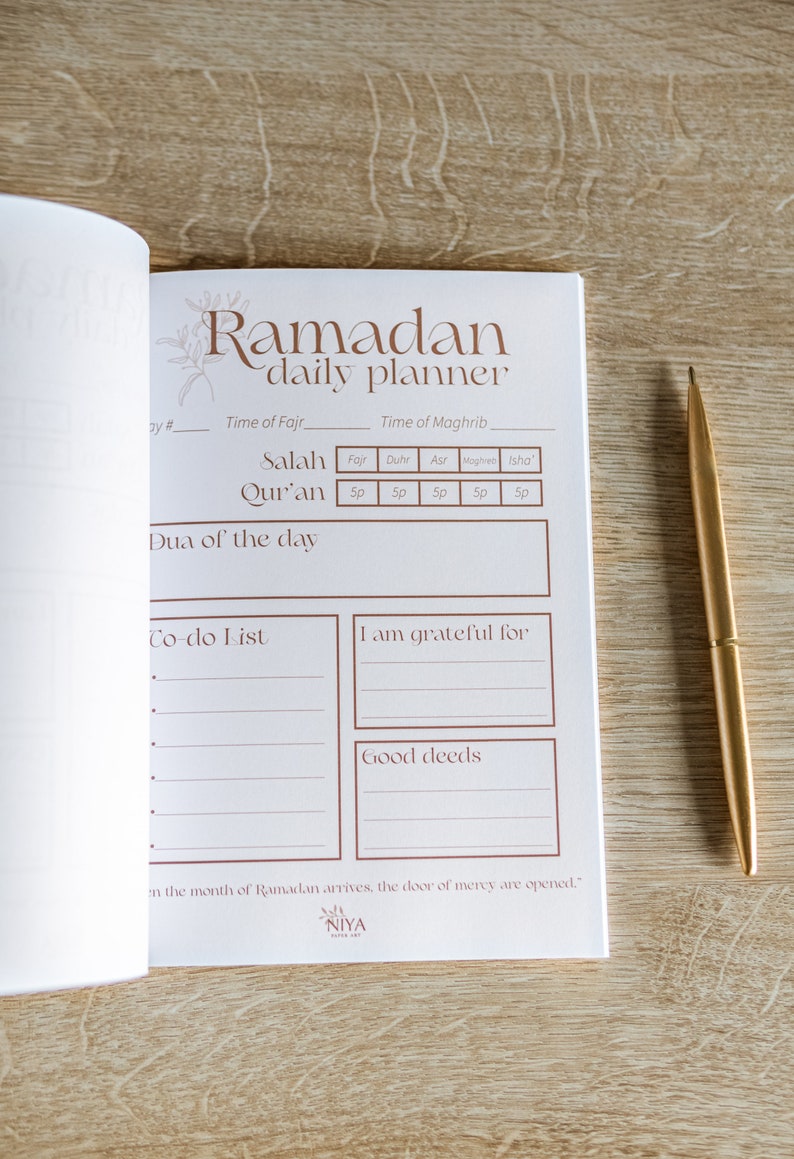 Ramadan
daily planner
ay #____ Time of Fajr________ Time of Maghrib ________
Salah Fajr Duhr Asr Maghreb Isha'
Qur'an 5p 5p 5p 5p 5p
Dua of the day
To-do List
I am grateful for
Good deeds
en the month of Ramadan arrives, the door of mercy are opened."
NIYA
PAPER ART